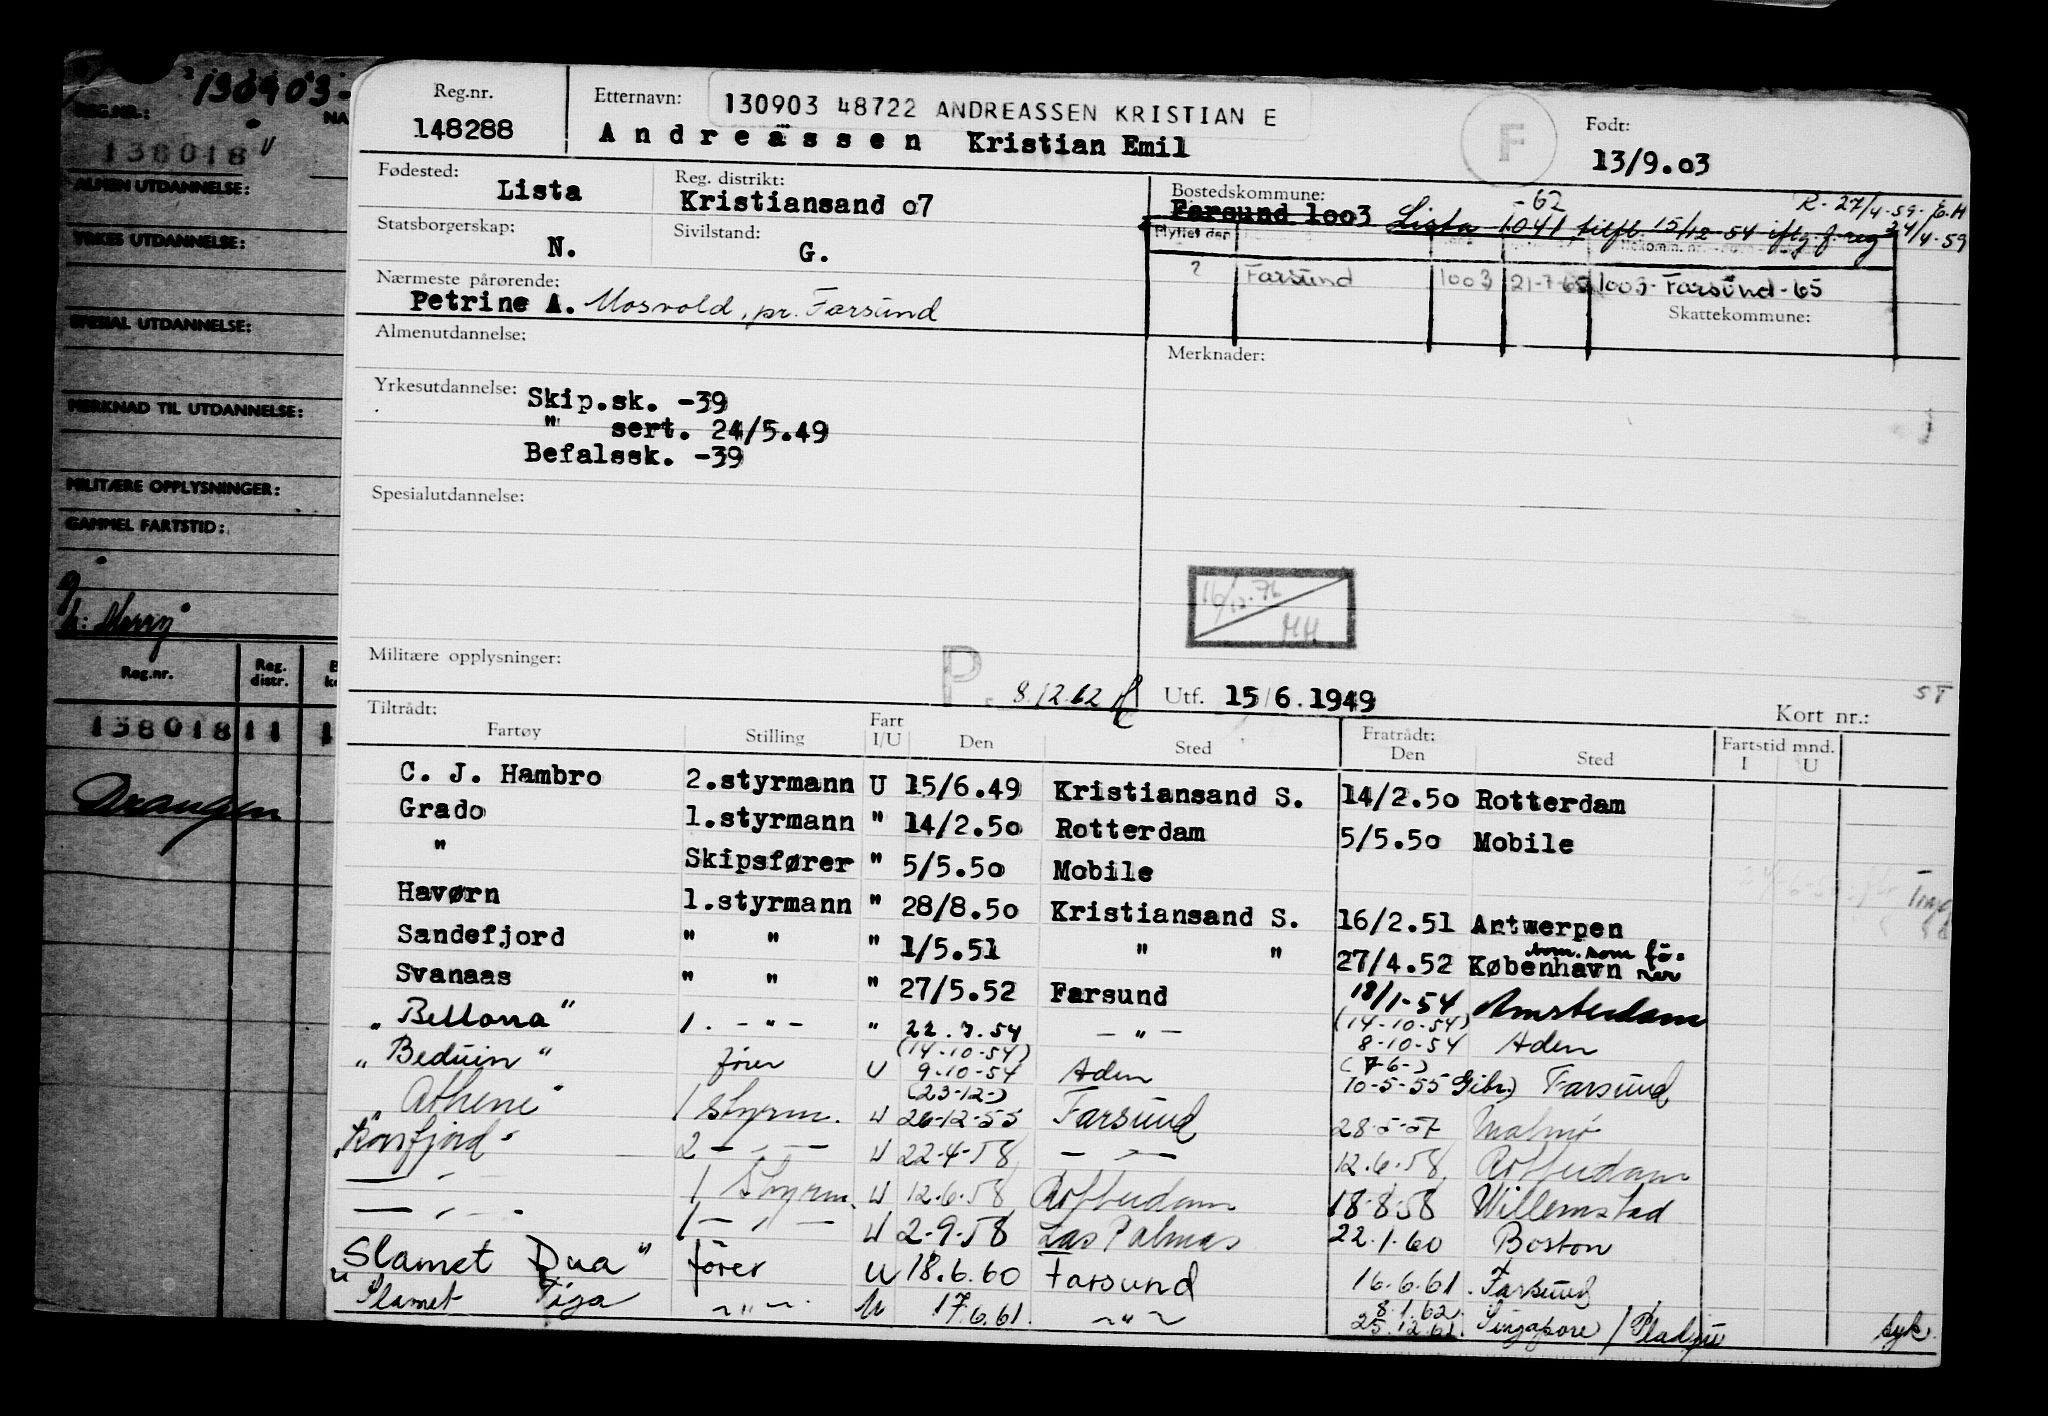 130903-
REG.NR.:
NA
138018
ALMEN UTDANNELSE:
YRKES UTDANNELSE:
SPESIAL UTDANNELSE:
MERKNAD TIL UTDANNELSE:
MILITÆRE OPPLYSNINGER:
GAMMEL FARTSTID:
Reg.nr.
Reg. distr.
138018 11 1
Draugen
Reg.nr.
148288
Etternavn:
130903 48722 ANDREASSEN KRISTIAN E
Andreassen Kristian Emil
F
Født:
13/9.03
Fødested:
Lista
Reg. distrikt:
Kristiansand 07
Bostedskommune:
-62
R. 27/4-59-
Farsund 1003 Lista 1041 tilfl. 15/12-54 iflg. f. reg 24/4-59
Statsborgerskap:
N.
Sivilstand:
G.
Flyttet den
? Farsund 1003 21-7-65 1003-Farsund-65
Skattekommune:
Nærmeste pårørende:
Petrine A. Mosvold, pr. Farsund
Almenutdannelse:
Merknader:
Yrkesutdannelse:
Skip.sk. -39
" sert. 24/5.49
Befalssk. -39
Spesialutdannelse:
16/12-76
HH
Militære opplysninger:
P.
8.12.62
Utf. 15/6.1949
ST
Kort nr.:
Tiltrådt:
Fartøy Stilling Fart I/U Den Sted
Fratrådt:
Den Sted
Fartstid mnd.
I U
C. J. Hambro 2.styrmann U 15/6.49 Kristiansand S. 14/2.50 Rotterdam
Grado 1.styrmann " 14/2.50 Rotterdam 5/5.50 Mobile
" Skipsfører " 5/5.50 Mobile
Havørn 1.styrmann " 28/8.50 Kristiansand S. 16/2.51 Antwerpen
Sandefjord " " " 1/5.51 " " 27/4.52 København
Svanaas " " " 27/5.52 Farsund 18/1-54 Amsterdam
"Bellona" 1. - " - " 22.7.54 - " - (14-10-54) 8-10-54 Aden
"Beduin" fører U (14-10-54) 9-10-54 Aden (7-6-) 10-5-55 Gibr.) Farsund
"Athene" 1 styrm. U (23-12-) 26-12-55 Farsund 28-5-57 Malmö
"Korsfjord" 2 - " - U 22-4-58 - " - 12.6.58 Rotterdam
- " - 1 Styrm. U 12.6.58 Rotterdam 18-8-58 Willemstad
- " - 1 - " - U 2-9-58 Las Palmas 22.1.60 Boston
"Slamet Dua" fører U 18.6.60 Farsund 16.6.61. Farsund
"Slamet Tiga - " - U 17.6.61. - " - 8.1.62. 25.12.61. Singapore / Pladju syk.